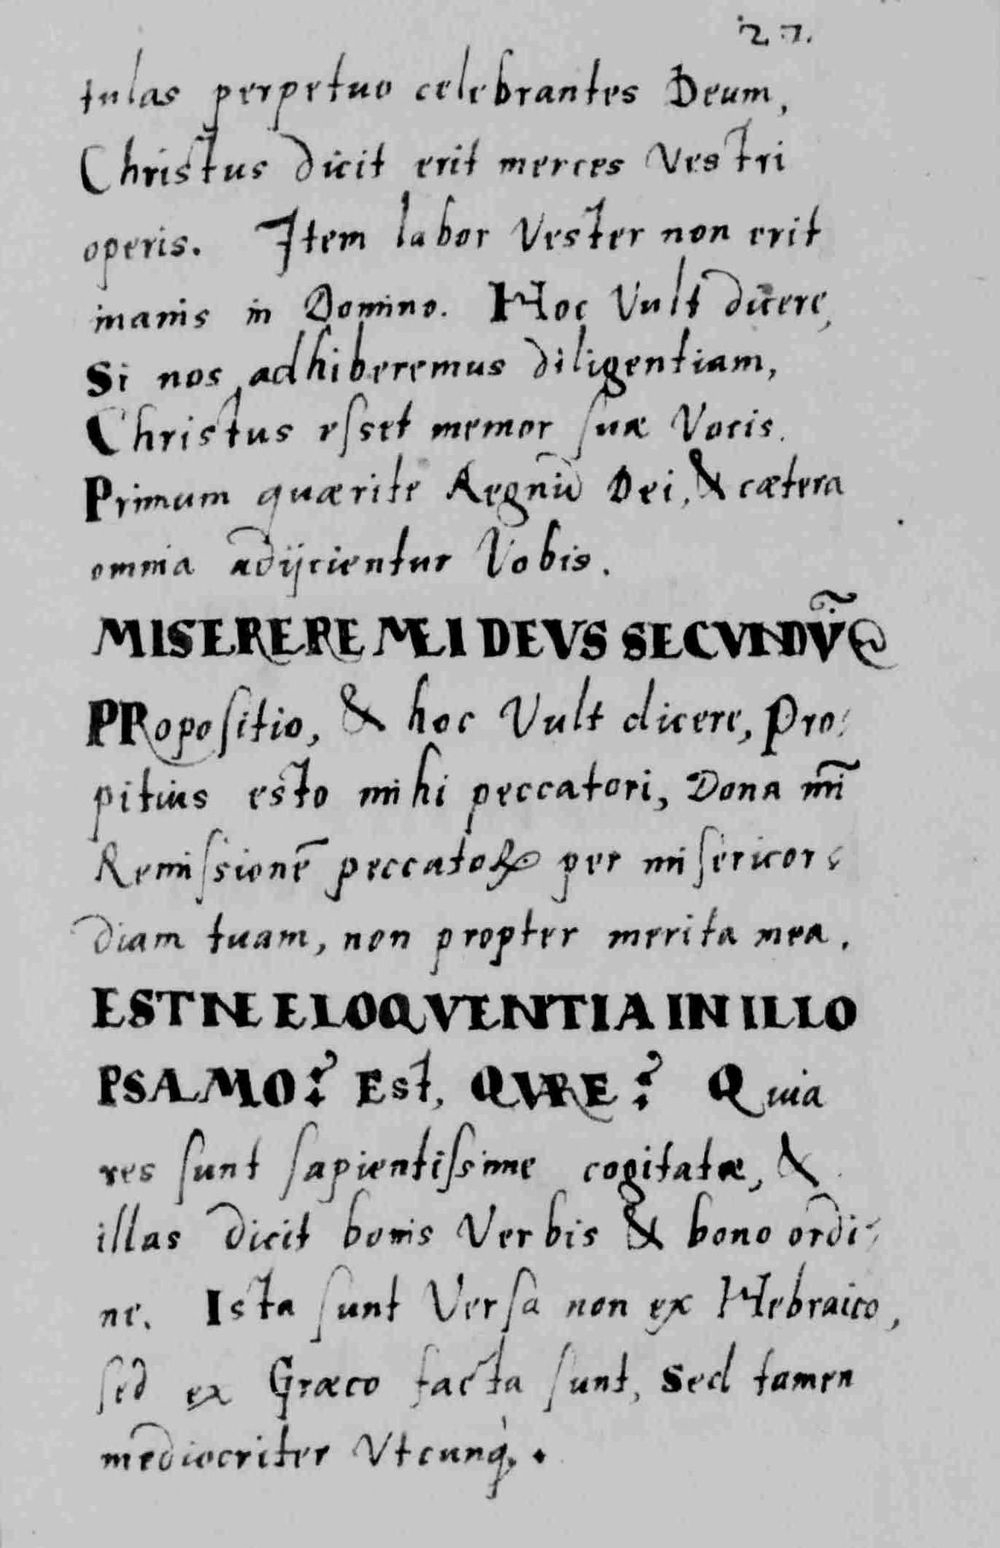 27.
tulas perpetuo celebrantes Deum,
Christus dicit erit merces Vestri
operis. Item labor Vester non erit
inanis in Domino. Hoc Vult dicere,
Si nos adhiberemus diligentiam,
Christus esset memor suæ Vocis.
Primum quærite Regnũ Dei, & cætera
omnia adijcientur Vobis.
MISERERE MEI DEVS SECVNDVM̃
PRopositio, & hoc Vult dicere, Pro:
pitius esto mihi peccatori, Dona mĩ
Remissionẽ peccatoꝝ per misericor:
diam tuam, non propter merita mea.
ESTNE ELOQVENTIA IN ILLO
PSALMO? Est, QVARE? Quia
res sunt sapientissime cogitatæ, &
illas dicit bonis Verbis & bono ordi:
ne. Ista sunt Versa non ex Hebraico,
sed ex Græco facta sunt, Sed tamen
mediocriter Vtcunq̃.